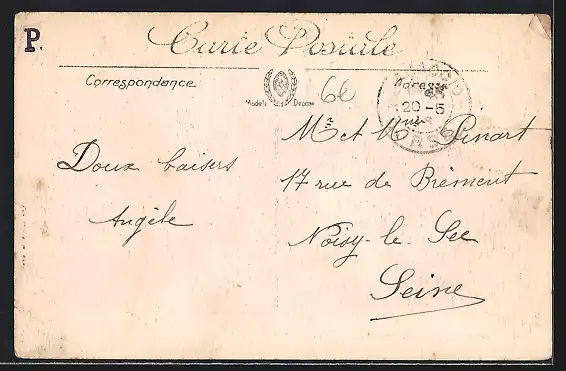 P.
Carte Postale
Correspondance
Adresse
Modèle Déposé
60
20-5
Mr et Mme Pinart
Doux baisers
17 rue de Brément
Angèle
Noisy-le-Sec
Seine